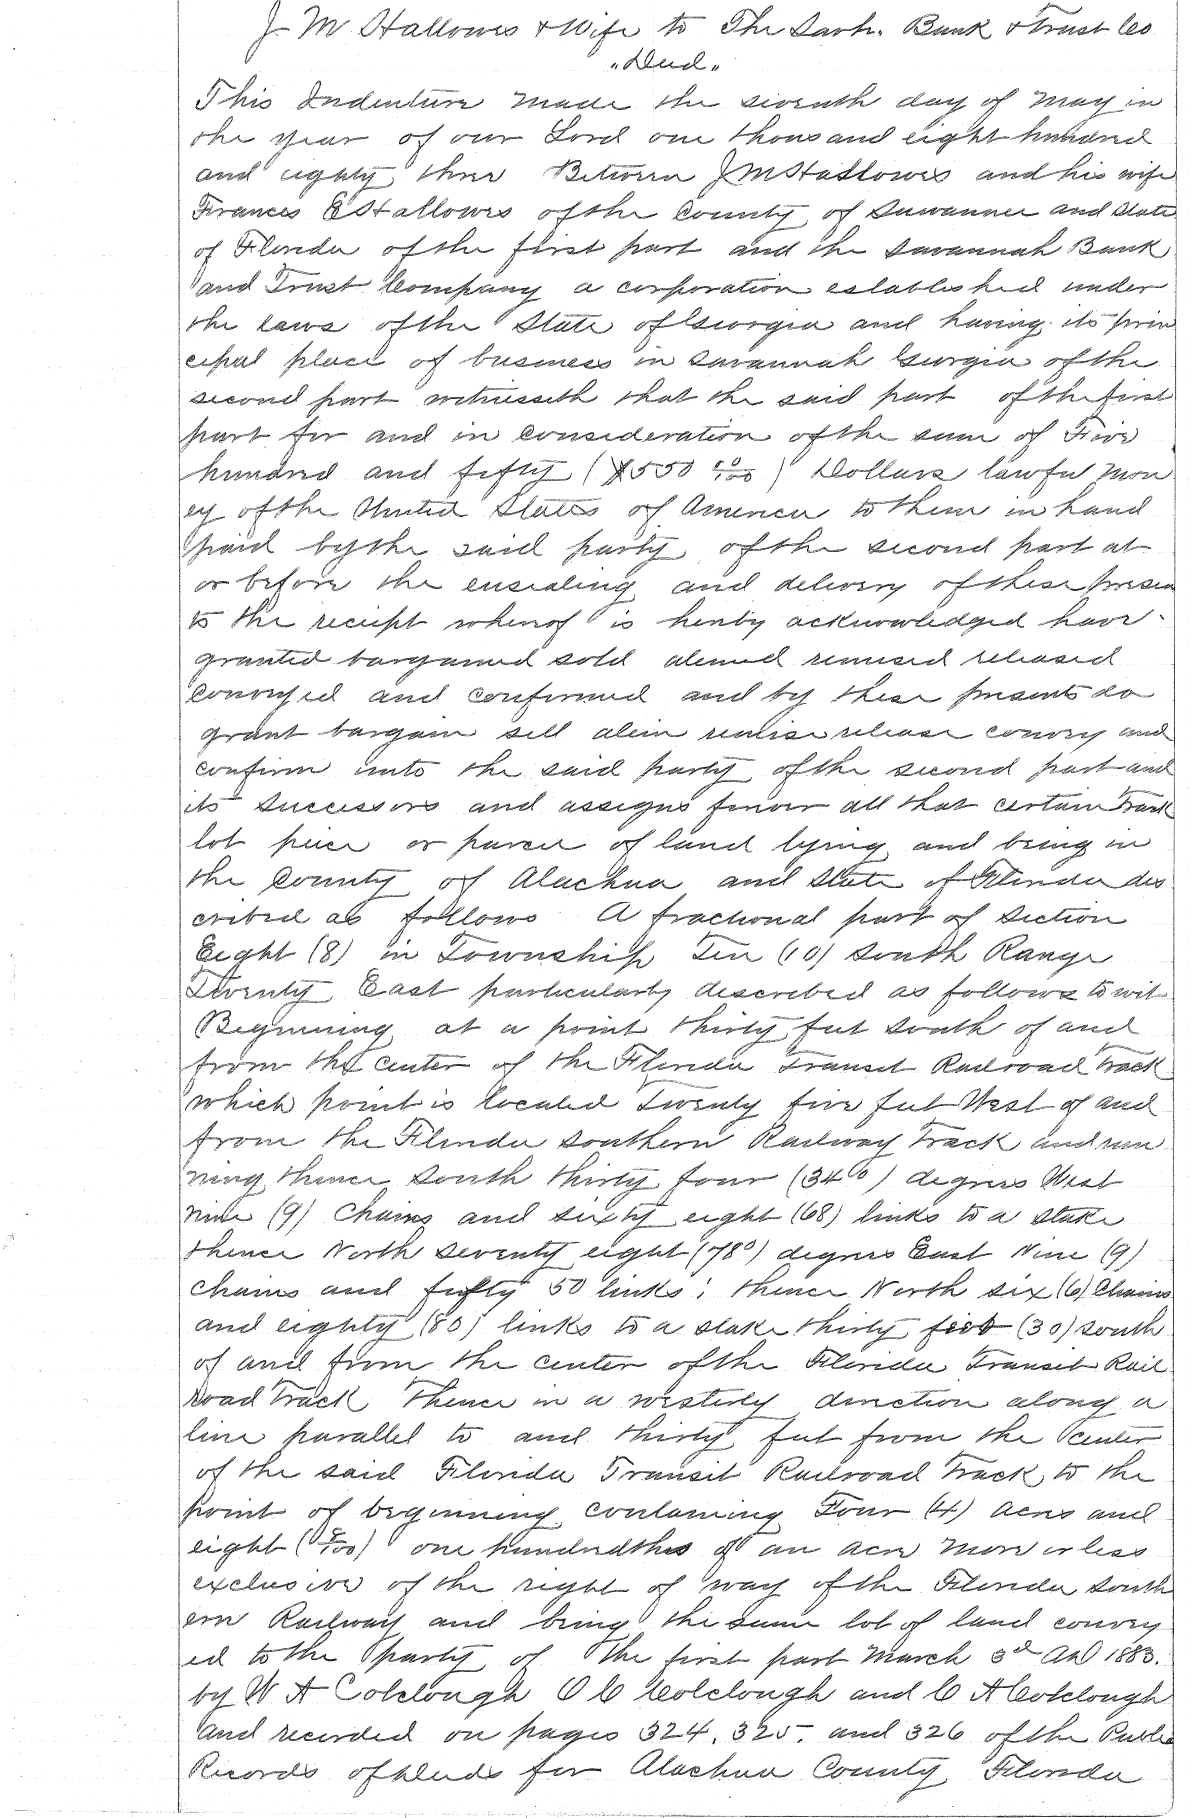 J M Hallowes & Wife to The Savh. Bank & Trust Co
"Deed"
This Indenture made the seventh day of May in
the year of our Lord one thousand eight hundred
and eighty three Between J M Hallowes and his wife
Frances E Hallowes of the County of Suwannee and State
of Florida of the first part and the Savannah Bank
and Trust Company a corporation established under
the laws of the State of Georgia and having its prin
cipal place of business in Savannah Georgia of the
second part witnesseth that the said part of the first
part for and in consideration of the sum of Five
hundred and fifty ($550 00/100) Dollars lawful mon
ey of the United States of America to them in hand
paid by the said party of the second part at
or before the ensealing and delivery of these presen
ts the receipt whereof is hereby acknowledged have
granted bargained sold aliened remised released
conveyed and confirmed and by these presents do
grant bargain sell alien remise release convey and
confirm unto the said party of the second part and
its successors and assigns forever all that certain Track
lot piece or parcel of land lying and being in
the County of Alachua and State of Florida des
cribed as follows A fractional part of Section
Eight (8) in Township Ten (10) South Range
Twenty East particularly described as follows to wit
Beginning at a point thirty feet south of and
from the center of the Florida Transit Railroad Track
which point is located Twenty five feet West of and
from the Florida Southern Railway Track and run
ning thence South thirty four (34°) degrees West
nine (9) Chains and sixty eight (68) links to a stake
thence North seventy eight (78°) degrees East Nine (9)
chains and fifty 50 links; thence North six (6) Chains
and eighty (80) links to a stake thirty feet (30) south
of and from the center of the Florida Transit Rail
road Track Thence in a westerly direction along a
line parallel to and thirty feet from the center
of the said Florida Transit Railroad Track to the
point of beginning containing Four (4) acres and
eight (8/100) one hundredths of an acre more or less
exclusive of the right of way of the Florida South
ern Railway and being the same lot of land convey
ed to the party of the first part March 3rd AD 1883.
by W A Colclough O C Colclough and C A Colclough
and recorded on pages 324, 325, and 326 of the Public
Records of deeds for Alachua County Florida